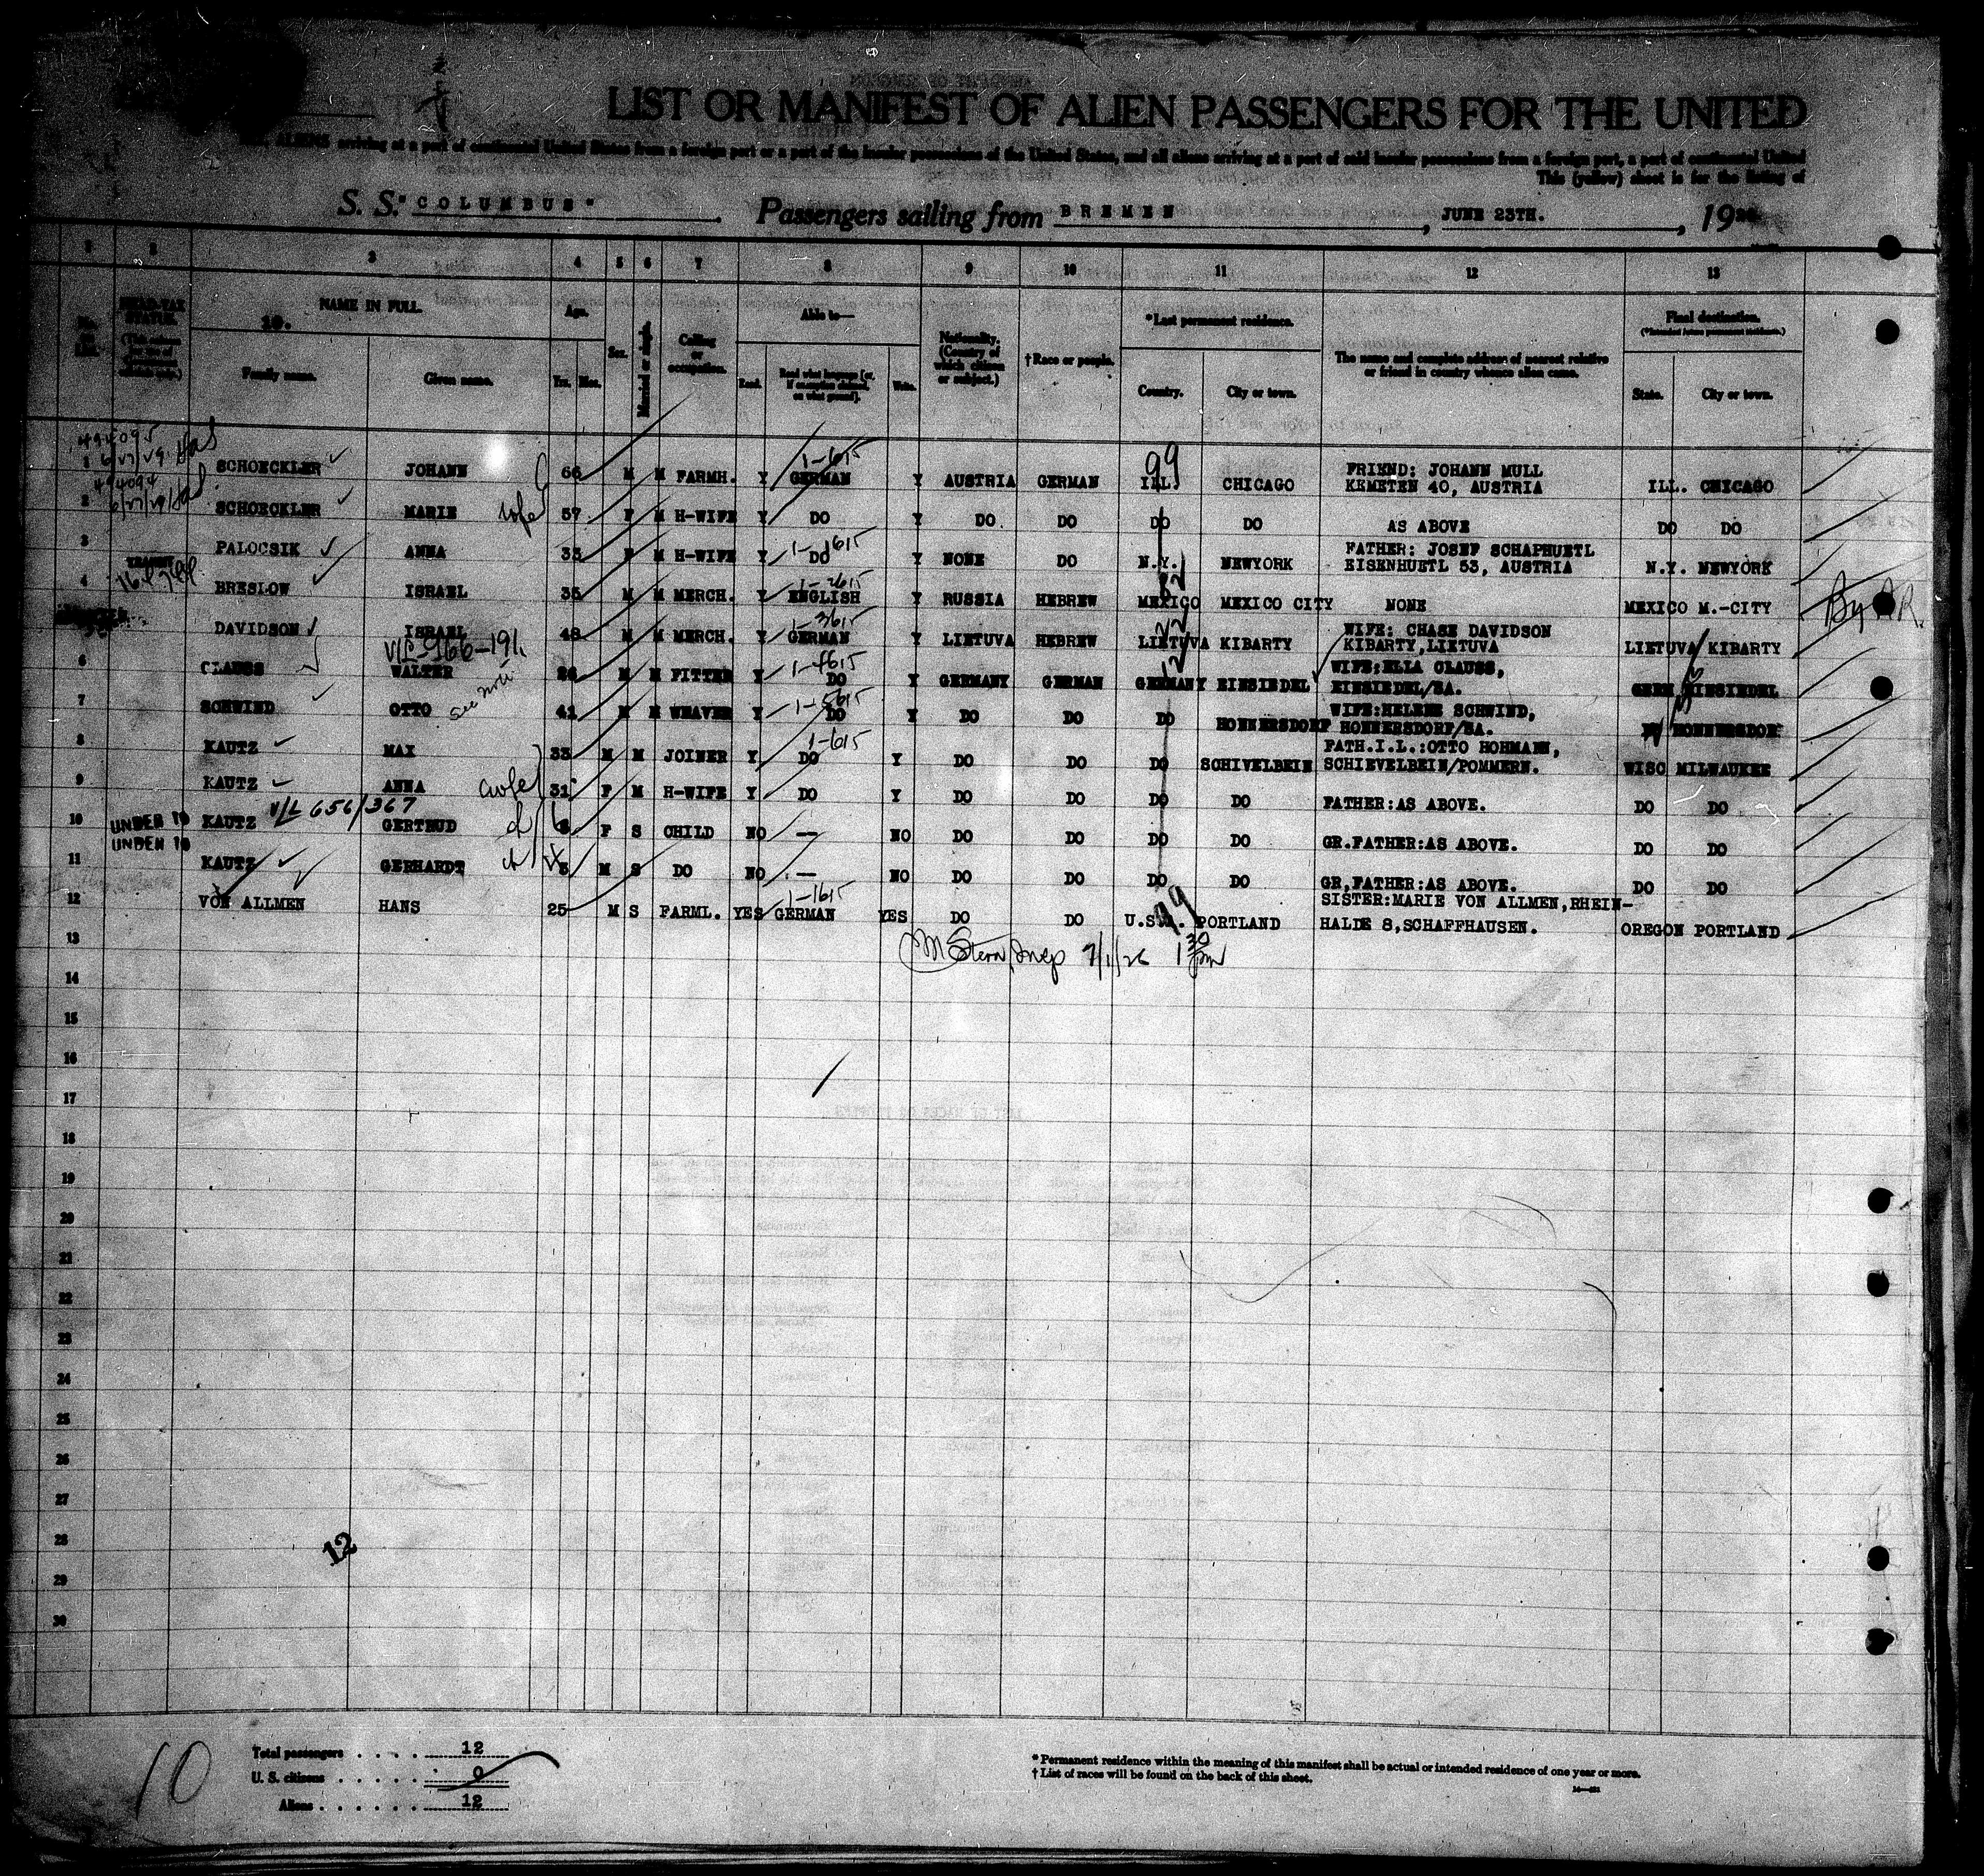 LIST OR MANIFEST OF ALIEN PASSENGERS FOR THE UNITED
ALIENS arriving at a port of continental United States from a foreign port or a port of the insular possessions of the United States, and all aliens arriving at a port of said insular possessions from a foreign port, a port of continental United
This (yellow) sheet is for the listing of
S. S. "COLUMBUS" Passengers sailing from BREMEN, JUNE 23TH., 19
1 2 3 4 5 6 7 8 9 10 11 12 13
No. on List.
HEAD-TAX STATUS.
NAME IN FULL
10.
Family name. Given name.
Age.
Yrs. Mos.
Sex.
Married or single.
Calling or occupation.
Able to—
Read. Read what language (or, if exemption claimed, on what ground). Write.
Nationality. (Country of which citizen or subject.)
†Race or people.
*Last permanent residence.
Country. City or town.
The name and complete address of nearest relative or friend in country whence alien came.
Final destination.
(*Intended future permanent residence.)
State. City or town.
494095
6/27/29
1 SCHOECKLER JOHANN 66 M M FARMH. Y GERMAN Y AUSTRIA GERMAN ILL. CHICAGO FRIEND: JOHANN MULL KEMETEN 40, AUSTRIA ILL. CHICAGO
1-615
99
494094
6/27/29
2 SCHOECKLER MARIE wife 57 F M H-WIFE Y DO Y DO DO DO DO AS ABOVE DO DO
3 PALOCSIK ANNA 33 F M H-WIFE Y DO Y NONE DO N.Y. NEWYORK FATHER: JOSEF SCHAPHUETL EISENHUETL 53, AUSTRIA N.Y. NEWYORK
1-1615
TRANSIT
4 BRESLOW ISRAEL 35 M M MERCH. Y ENGLISH Y RUSSIA HEBREW MEXICO MEXICO CITY NONE MEXICO M.-CITY
1-2615
DAVIDSON ISRAEL 48 M M MERCH. Y GERMAN Y LIETUVA HEBREW LIETUVA KIBARTY WIFE: CHASE DAVIDSON KIBARTY, LIETUVA LIETUVA KIBARTY
1-3615
V/L-966-191.
6 CLAUSS WALTER M M FITTER Y DO Y GERMANY GERMAN GERMANY EINSIEDEL WIFE:ELLA CLAUSS, EINSIEDEL/SA. GERM EINSIEDEL
1-4615
see
7 SCHWIND OTTO 41 M M WEAVER Y DO Y DO DO DO HONNERSDORF WIFE:HELENE SCHWIND, HONNERSDORF/SA. HONNERSDORF
1-5615
8 KAUTZ MAX 33 M M JOINER Y DO Y DO DO DO SCHIVELBEIN FATH.I.L.:OTTO HOHMANN, SCHIEVELBEIN/POMMERN. WISC MILWAUKEE
1-615
9 KAUTZ ANNA wife 31 F M H-WIFE Y DO Y DO DO DO DO FATHER:AS ABOVE. DO DO
V/L 656/367
10 UNDER 16 KAUTZ GERTRUD F S CHILD NO — NO DO DO DO DO GR.FATHER:AS ABOVE. DO DO
UNDER 16
11 KAUTZ GERHARDT ch M S DO NO — NO DO DO DO DO GR,FATHER:AS ABOVE. DO DO
12 VON ALLMEN HANS 25 M S FARML. YES GERMAN YES DO DO U.S.A. PORTLAND SISTER:MARIE VON ALLMEN,RHEIN-HALDE 8,SCHAFFHAUSEN. OREGON PORTLAND
1-1615
99
13 M Stern Insp 7/1/26 1 30 pm
14
15
16
17
18
19
20
21
22
23
24
25
26
27
28
29
30
12
10
Total passengers . . . . 12
U. S. citizens . . . . . 0
Aliens . . . . . . 12
* Permanent residence within the meaning of this manifest shall be actual or intended residence of one year or more.
† List of races will be found on the back of this sheet.